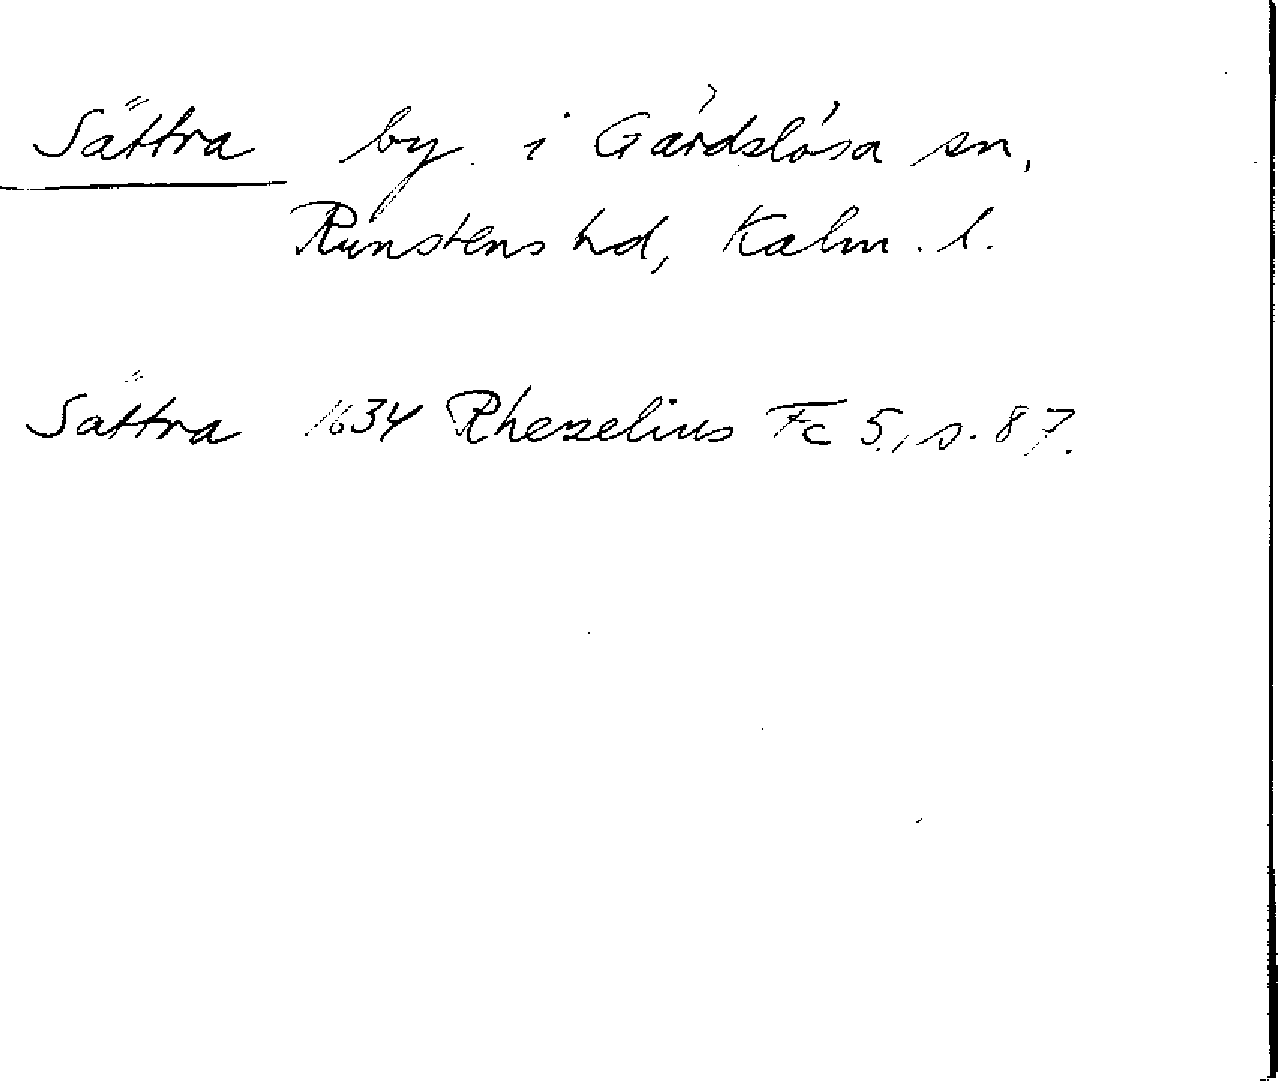 Sättra by i Gärdslösa sn,
Runstens hd, Kalm. l.
Sättra 1634 Rhezelius Fc 5, s. 87.